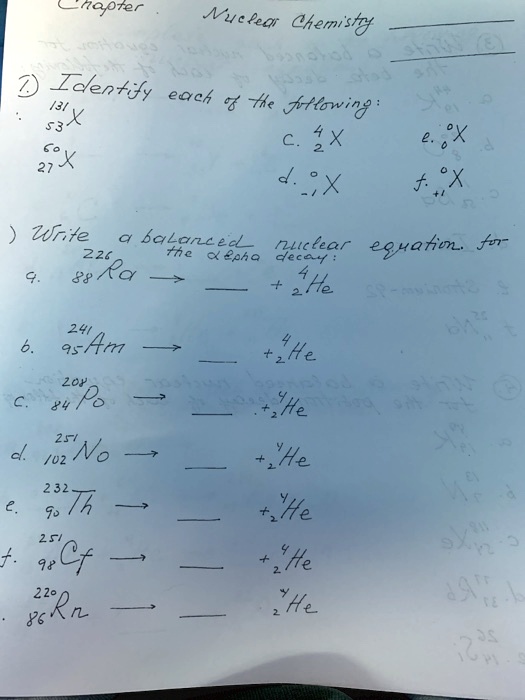 Chapter Nuclear Chemistry
1) Identify each of the following:
¹³¹₅₃X
c. ⁴₂X e. ⁰₀X
⁶⁰₂₇X
d. ⁰₋₁X f. ⁰₊₁X
) Write a balanced nuclear equation for
the alpha decay:
a. ²²⁶₈₈Ra → ___ + ⁴₂He
b. ²⁴¹₉₅Am → ___ + ⁴₂He
c. ²⁰⁸₈₄Po → ___ + ⁴₂He
d. ²⁵¹₁₀₂No → ___ + ⁴₂He
e. ²³²₉₀Th → ___ + ⁴₂He
f. ²⁵¹₉₈Cf → ___ + ⁴₂He
. ²²⁰₈₆Rn → ___ ⁴₂He